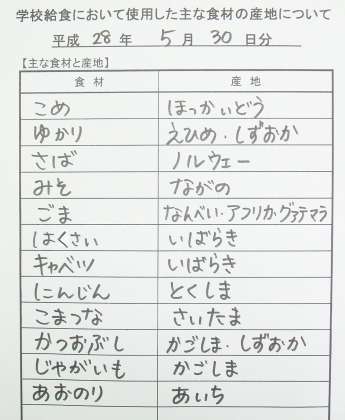 学校給食において使用した主な食材の産地について
平成 28 年 5 月 30 日分
【主な食材と産地】
食 材 産 地
こめ ほっかいどう
ゆかり えひめ・しずおか
さば ノルウェー
みそ ながの
ごま なんべい・アフリカ・グァテマラ
はくさい いばらき
キャベツ いばらき
にんじん とくしま
こまつな さいたま
かつおぶし かごしま・しずおか
じゃがいも かごしま
あおのり あいち